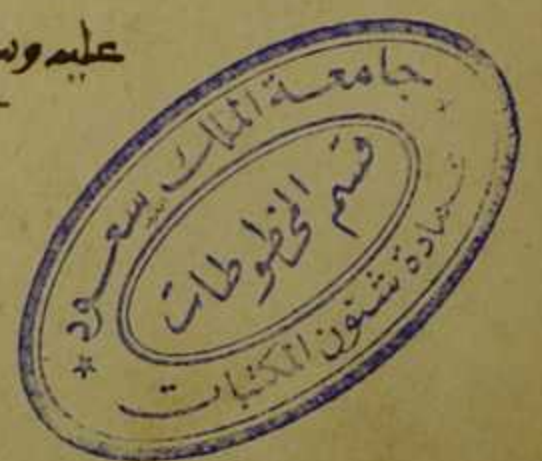 عليه وس
جامعة الملك سعود
قسم المخطوطات
عمادة شئون المكتبات *